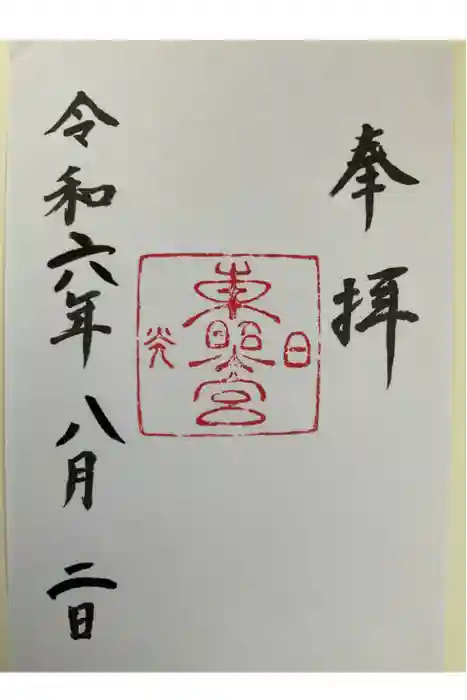 奉拝
日光
東照宮
令和六年八月二日